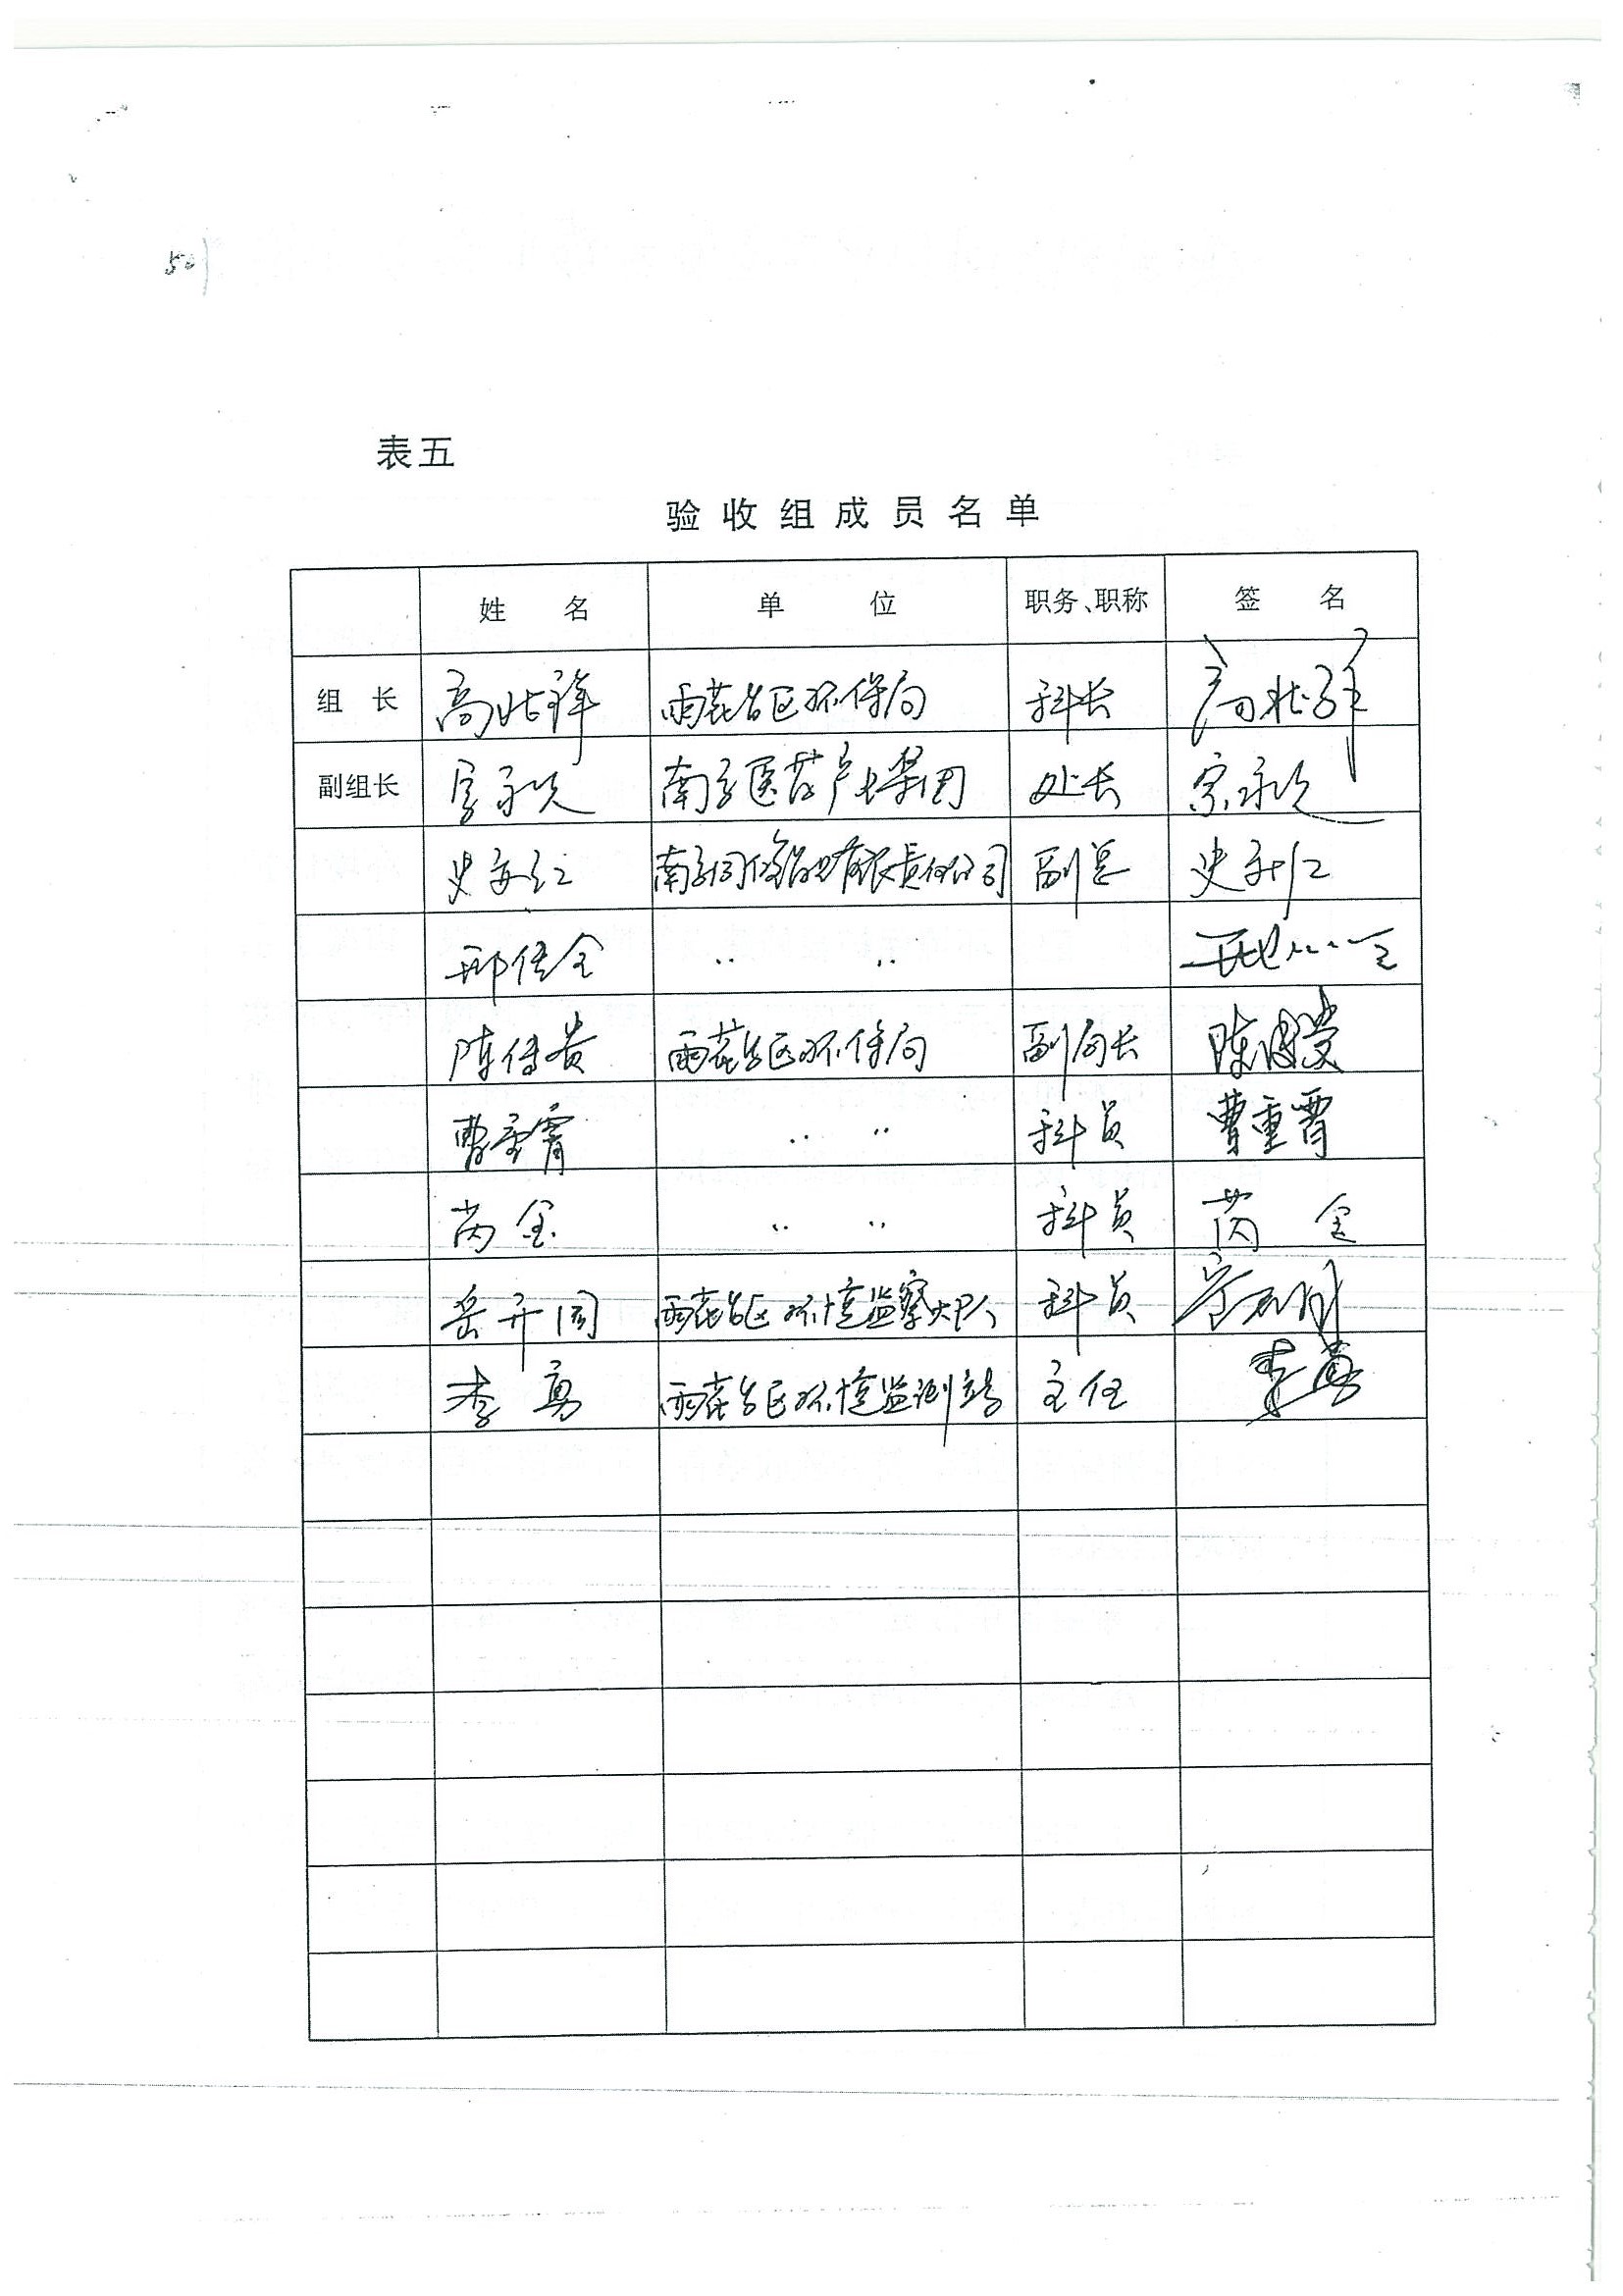 50
表五
验收组成员名单
姓名 单位 职务、职称 签名
组长 高兆祥 雨花台区环保局 科长 高兆祥
副组长 宗永久 南京医药产业集团 处长 宗永久
史 南京同仁堂药业有限责任公司 副总 史
邢俊全 〃 〃 邢 全
陈传贵 雨花台区环保局 副局长 陈传贵
曹重霄 〃 〃 科员 曹重霄
芮金 〃 〃 科员 芮金
岳开国 雨花台区环境监察大队 科员
李勇 雨花台区环境监测站 主任 李勇